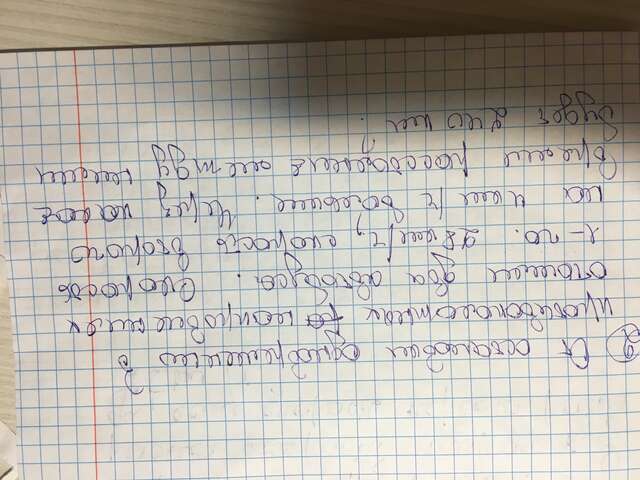 2) От остановки одновременно в
противоположных направлениях
отошли два автобуса. Скорость
1-го. 28 км/ч, скорость второго
на 4 км/ч больше. Через какое
время расстояние между ними
будет 240 км.